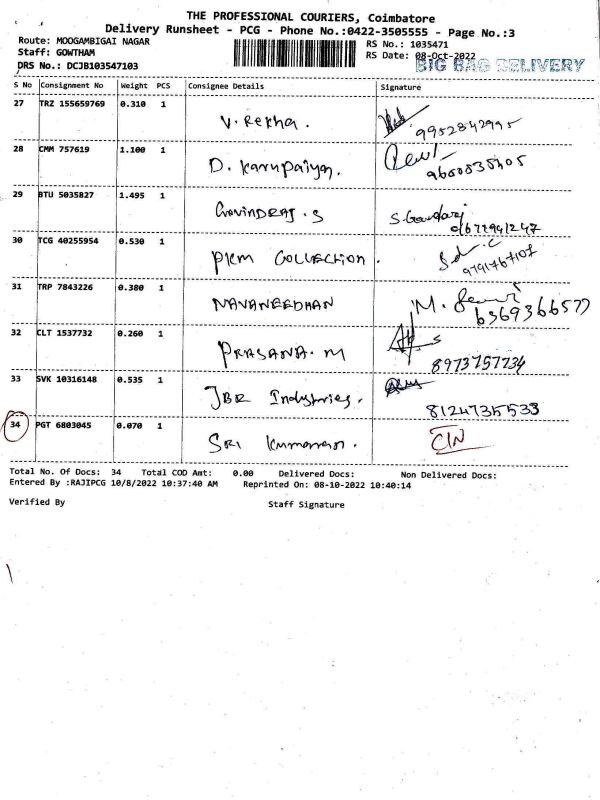 THE PROFESSIONAL COURIERS, Coimbatore
Delivery Runsheet - PCG - Phone No.:0422-3505555 - Page No.:3
Route: MOOGAMBIGAI NAGAR
RS No.: 1035471
Staff: GOWTHAM
RS Date: 08-Oct-2022
DRS No.: DCJB103547103
BIG BAG DELIVERY
S No Consignment No Weight PCS Consignee Details Signature
27 TRZ 155659769 0.310 1
V. Rekha. 9952842995
28 CMM 757619 1.100 1
D. Karupaiya.
29 BTU 5035827 1.495 1
Govindraj. S
30 TCG 40255954 0.530 1
PKM COLLECTION. 9791767107
31 TRP 7843226 0.380 1
NAVANEEDHAN 6369366577
32 CLT 1537732 0.260 1
PRASANA. M 8973757734
33 SVK 10316148 0.535 1
JBR Industries. 8124735533
34 PGT 6803045 0.070 1
SRI Kumaran. CIN
Total No. Of Docs: 34 Total COD Amt: 0.00 Delivered Docs: Non Delivered Docs:
Entered By :RAJIPCG 10/8/2022 10:37:40 AM Reprinted On: 08-10-2022 10:40:14
Verified By Staff Signature